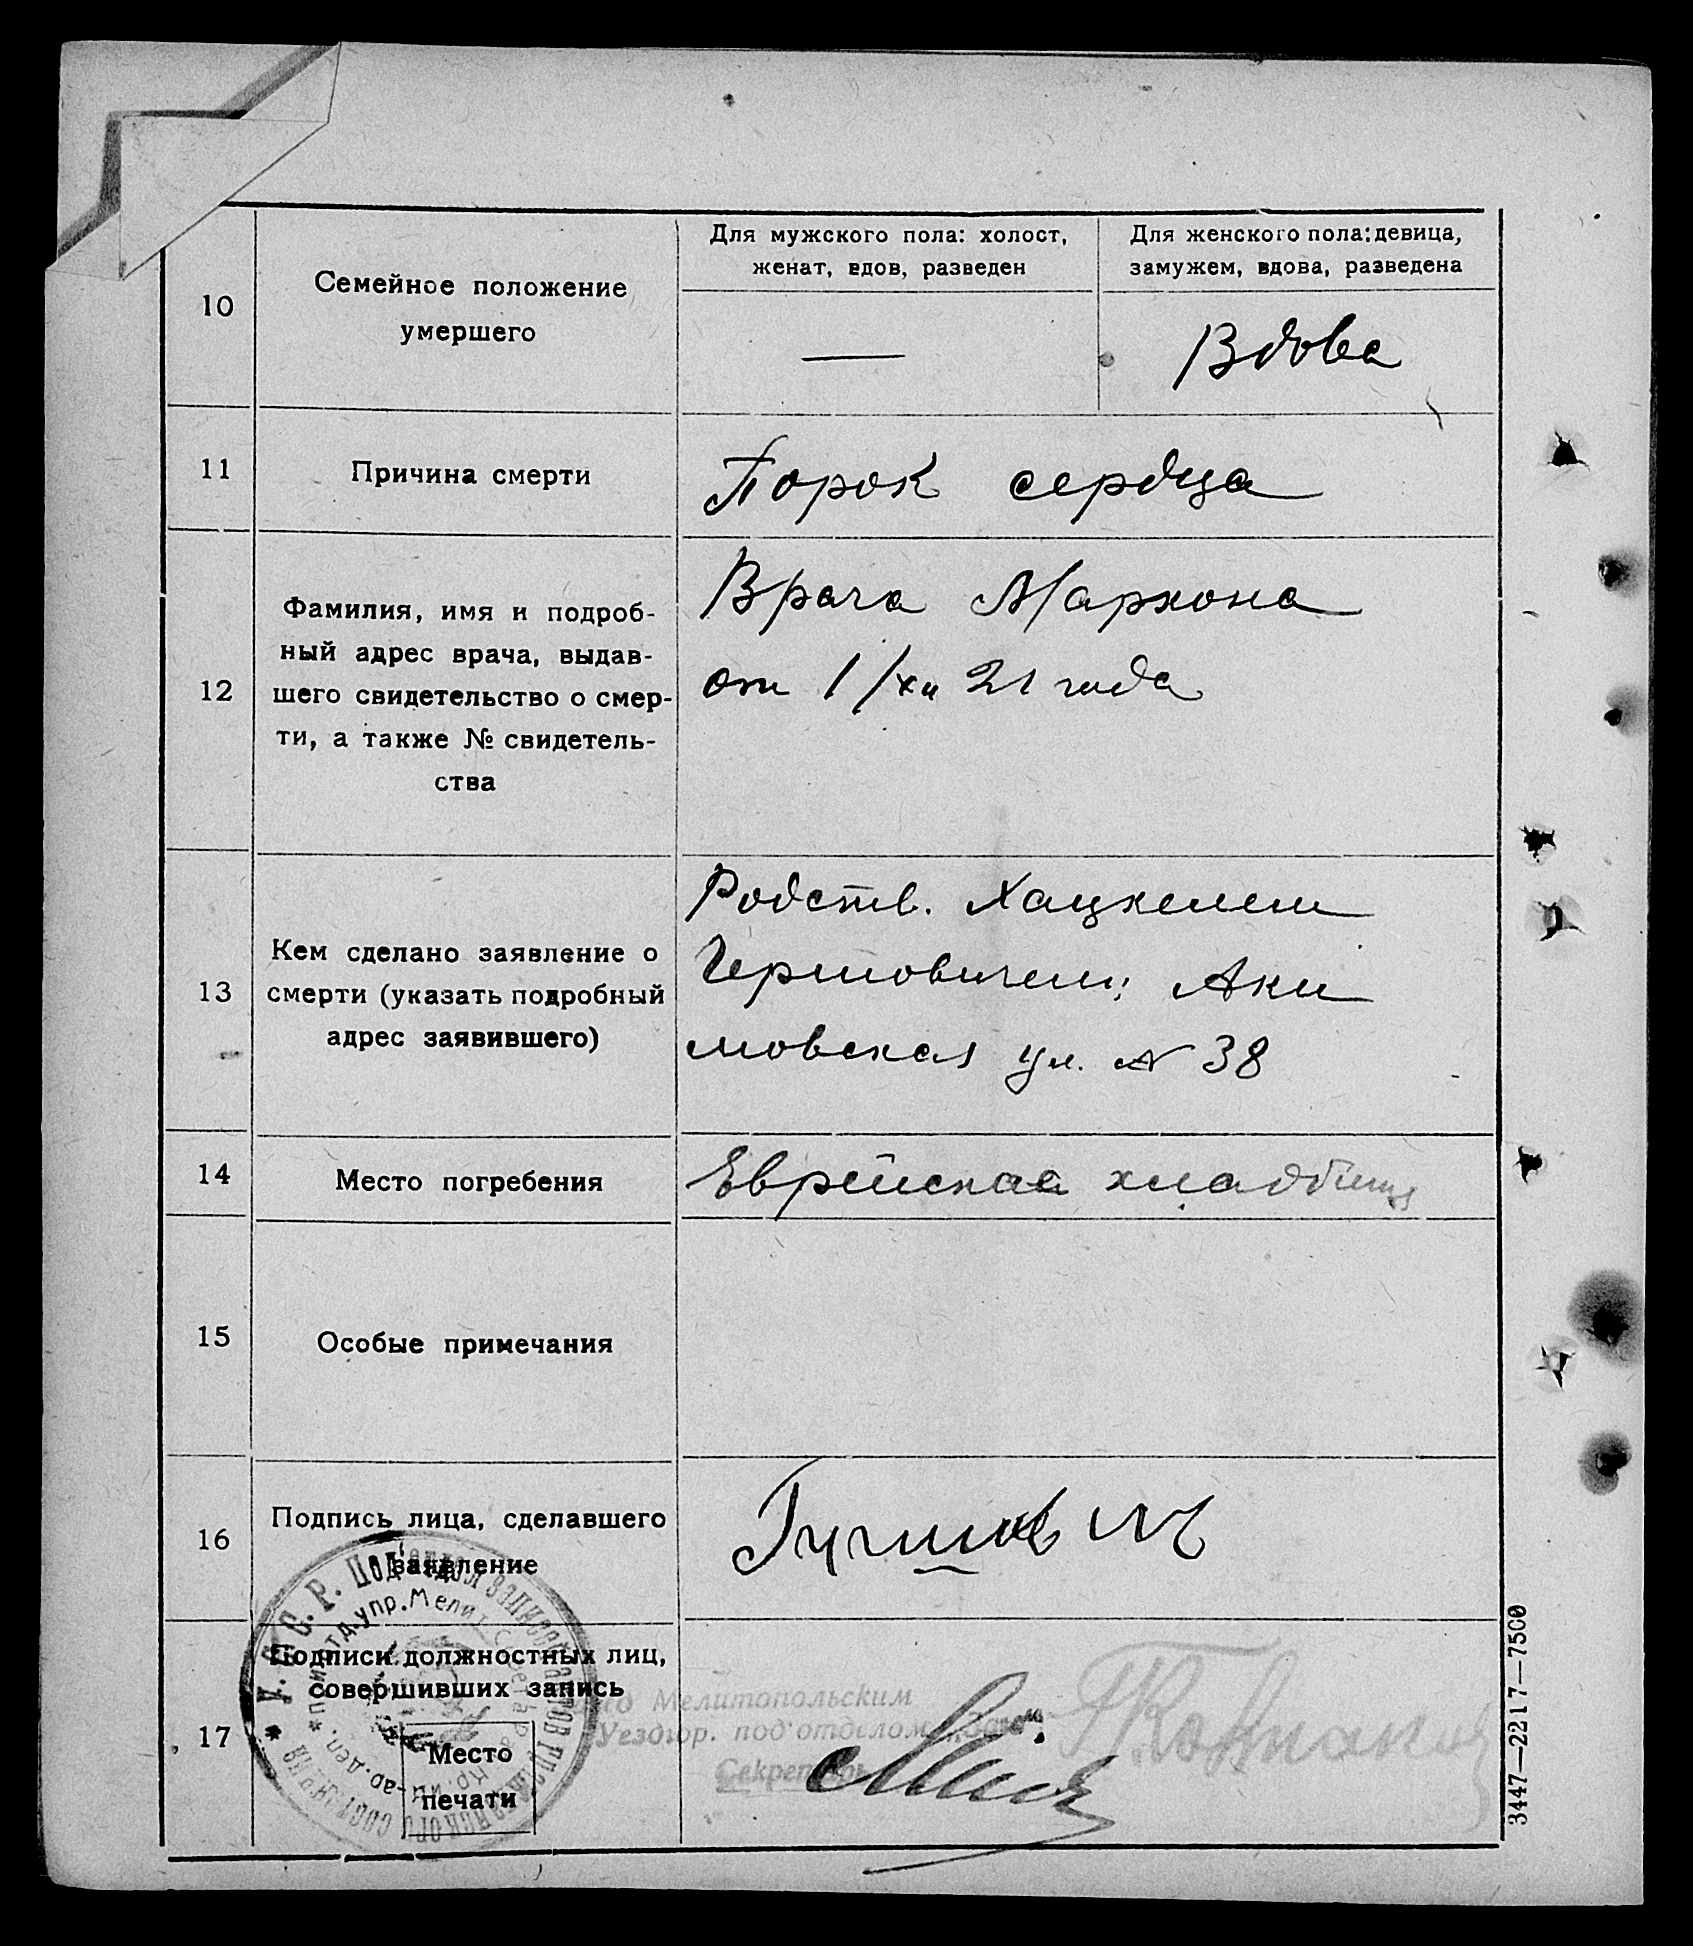 10
Семейное положение
умершего
Для мужского пола: холост,
женат, вдов, разведен
—
Для женского пола: девица,
замужем, вдова, разведена
Вдова
11
Причина смерти
Порок сердца
12
Фамилия, имя и подроб-
ный адрес врача, выдав-
шего свидетельство о смер-
ти, а также № свидетель-
ства
Врача Маркона
от 1/XII 21 года
13
Кем сделано заявление о
смерти (указать подробный
адрес заявившего)
Родств. Хацкелем
Аки
мовская ул. № 38
14
Место погребения
Еврейское кладбище
15
Особые примечания
16
Подпись лица, сделавшего
заявление
17
Подписи должностных лиц,
совершивших запись
Место
печати
Мелитопольским
Уездгор. подотделом „Загс“.
Секретарь
У. С. С. Р. Подотдел записей актов гражданского состояния
упр. Мелит.
3447—2217—7500